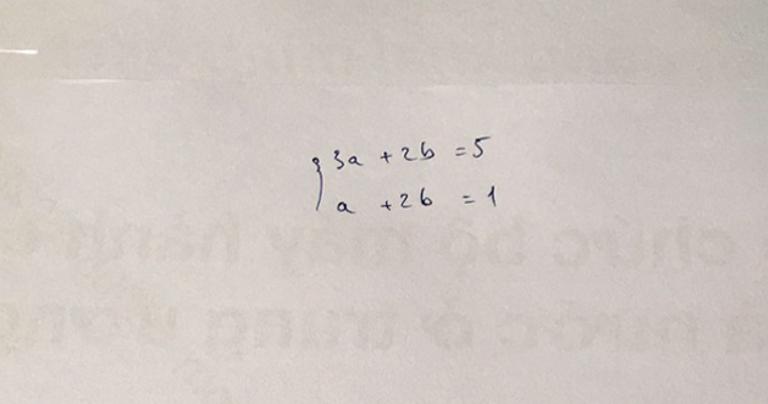 3a + 2b = 5
a + 2b = 1